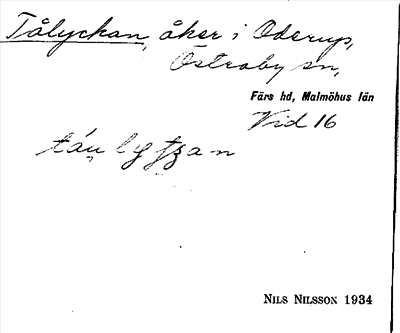 Tålyckan, åker i Oderup,
Östraby sn,
Färs hd, Malmöhus län
Vid 16
NILS NILSSON 1934